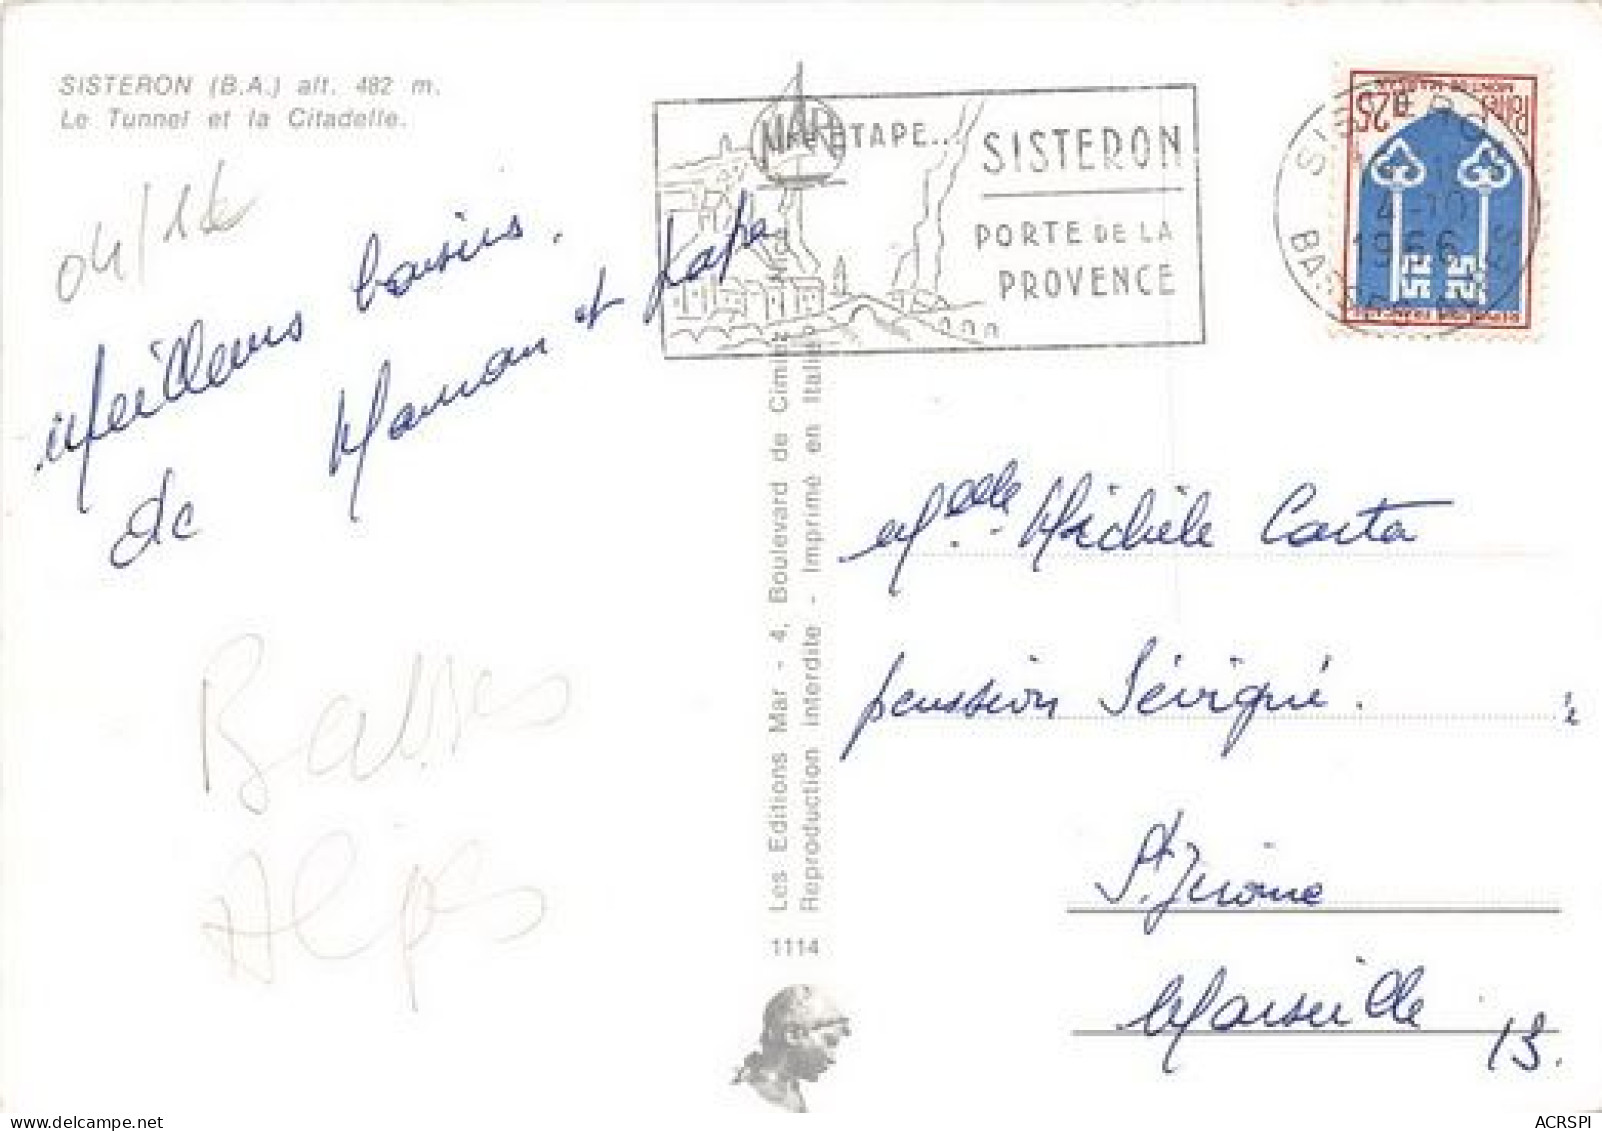 SISTERON (B.A.) alt. 482 m.
Le Tunnel et la Citadelle.
04/14
Meilleurs baisers.
de Maman et Papa
Basses
Alpes
MAR
ETAPE...
SISTERON
PORTE DE LA
PROVENCE
Les Editions Mar - 4, Boulevard de Cimiez - Nice
Reproduction interdite - Imprimé en Italie
1114
0,25
Postes
MONT-DE-MARSAN
REPUBLIQUE FRANCAISE
1966
Melle Michèle Costa
pension Sévigné.
St. Jérome
Marseille 13.
www.delcampe.net
ACRSPI